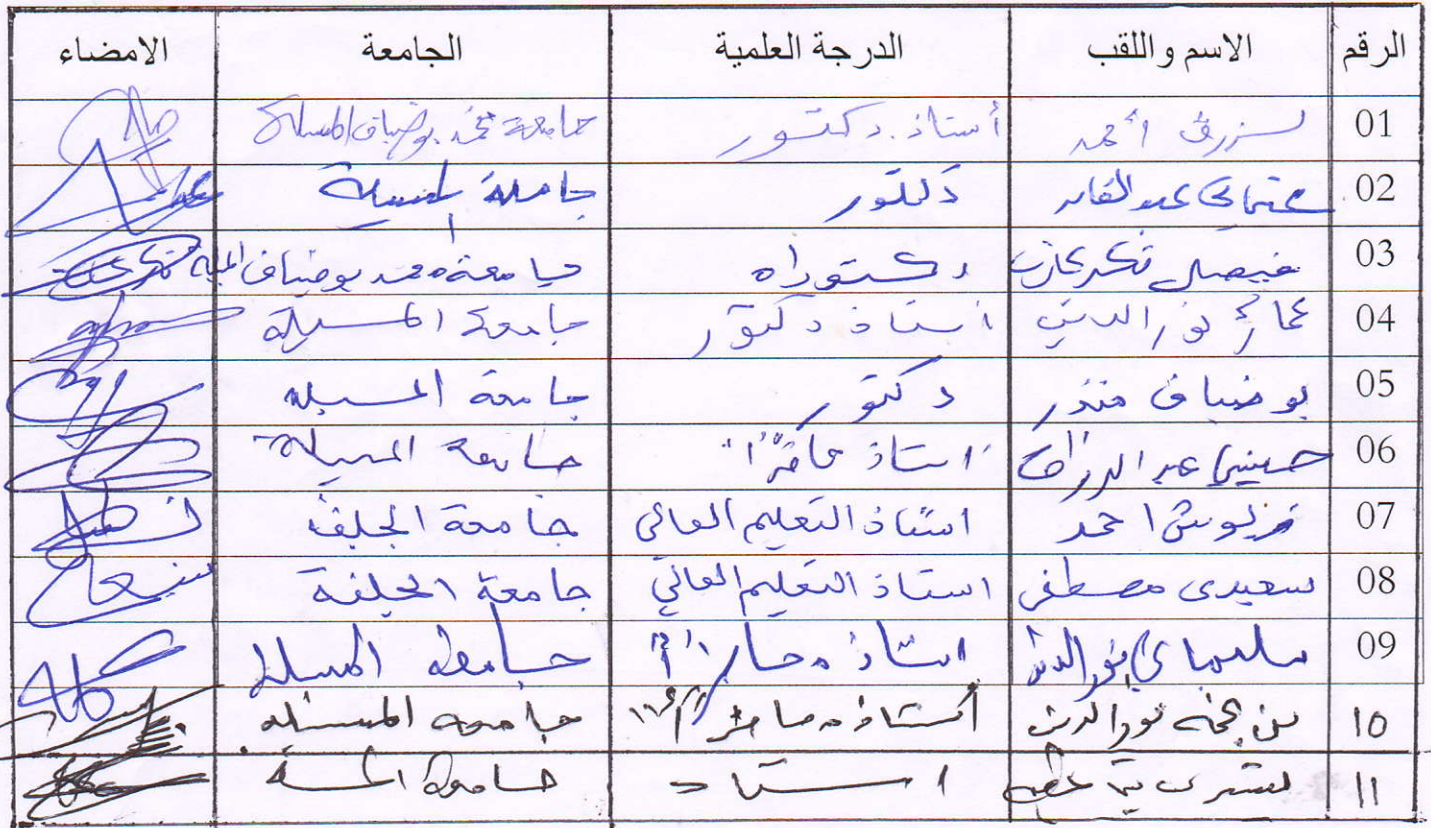 الرقم الاسم واللقب الدرجة العلمية الجامعة الامضاء
01 لزرق أحمد أستاذ دكتور جامعة محمد بوضياف المسيلة
02 عثماني عبد القادر دكتور جامعة المسيلة
03 فيصل دكتوراه جامعة محمد بوضياف المسيلة
04 نور الدين استاذ دكتور جامعة المسيلة
05 بوضياف منذر دكتور جامعة المسيلة
06 حسيني عبد الرزاق استاذ محاضر "أ" جامعة المسيلة
07 احمد استاذ التعليم العالي جامعة الجلفة
08 سعيدي مصطفى استاذ التعليم العالي جامعة الجلفة
09 سليماني نور الدين استاذ محاضر "أ" جامعة المسيلة
10 بن نور الدين أستاذ محاضر "أ" جامعة المسيلة
11 استاذ جامعة